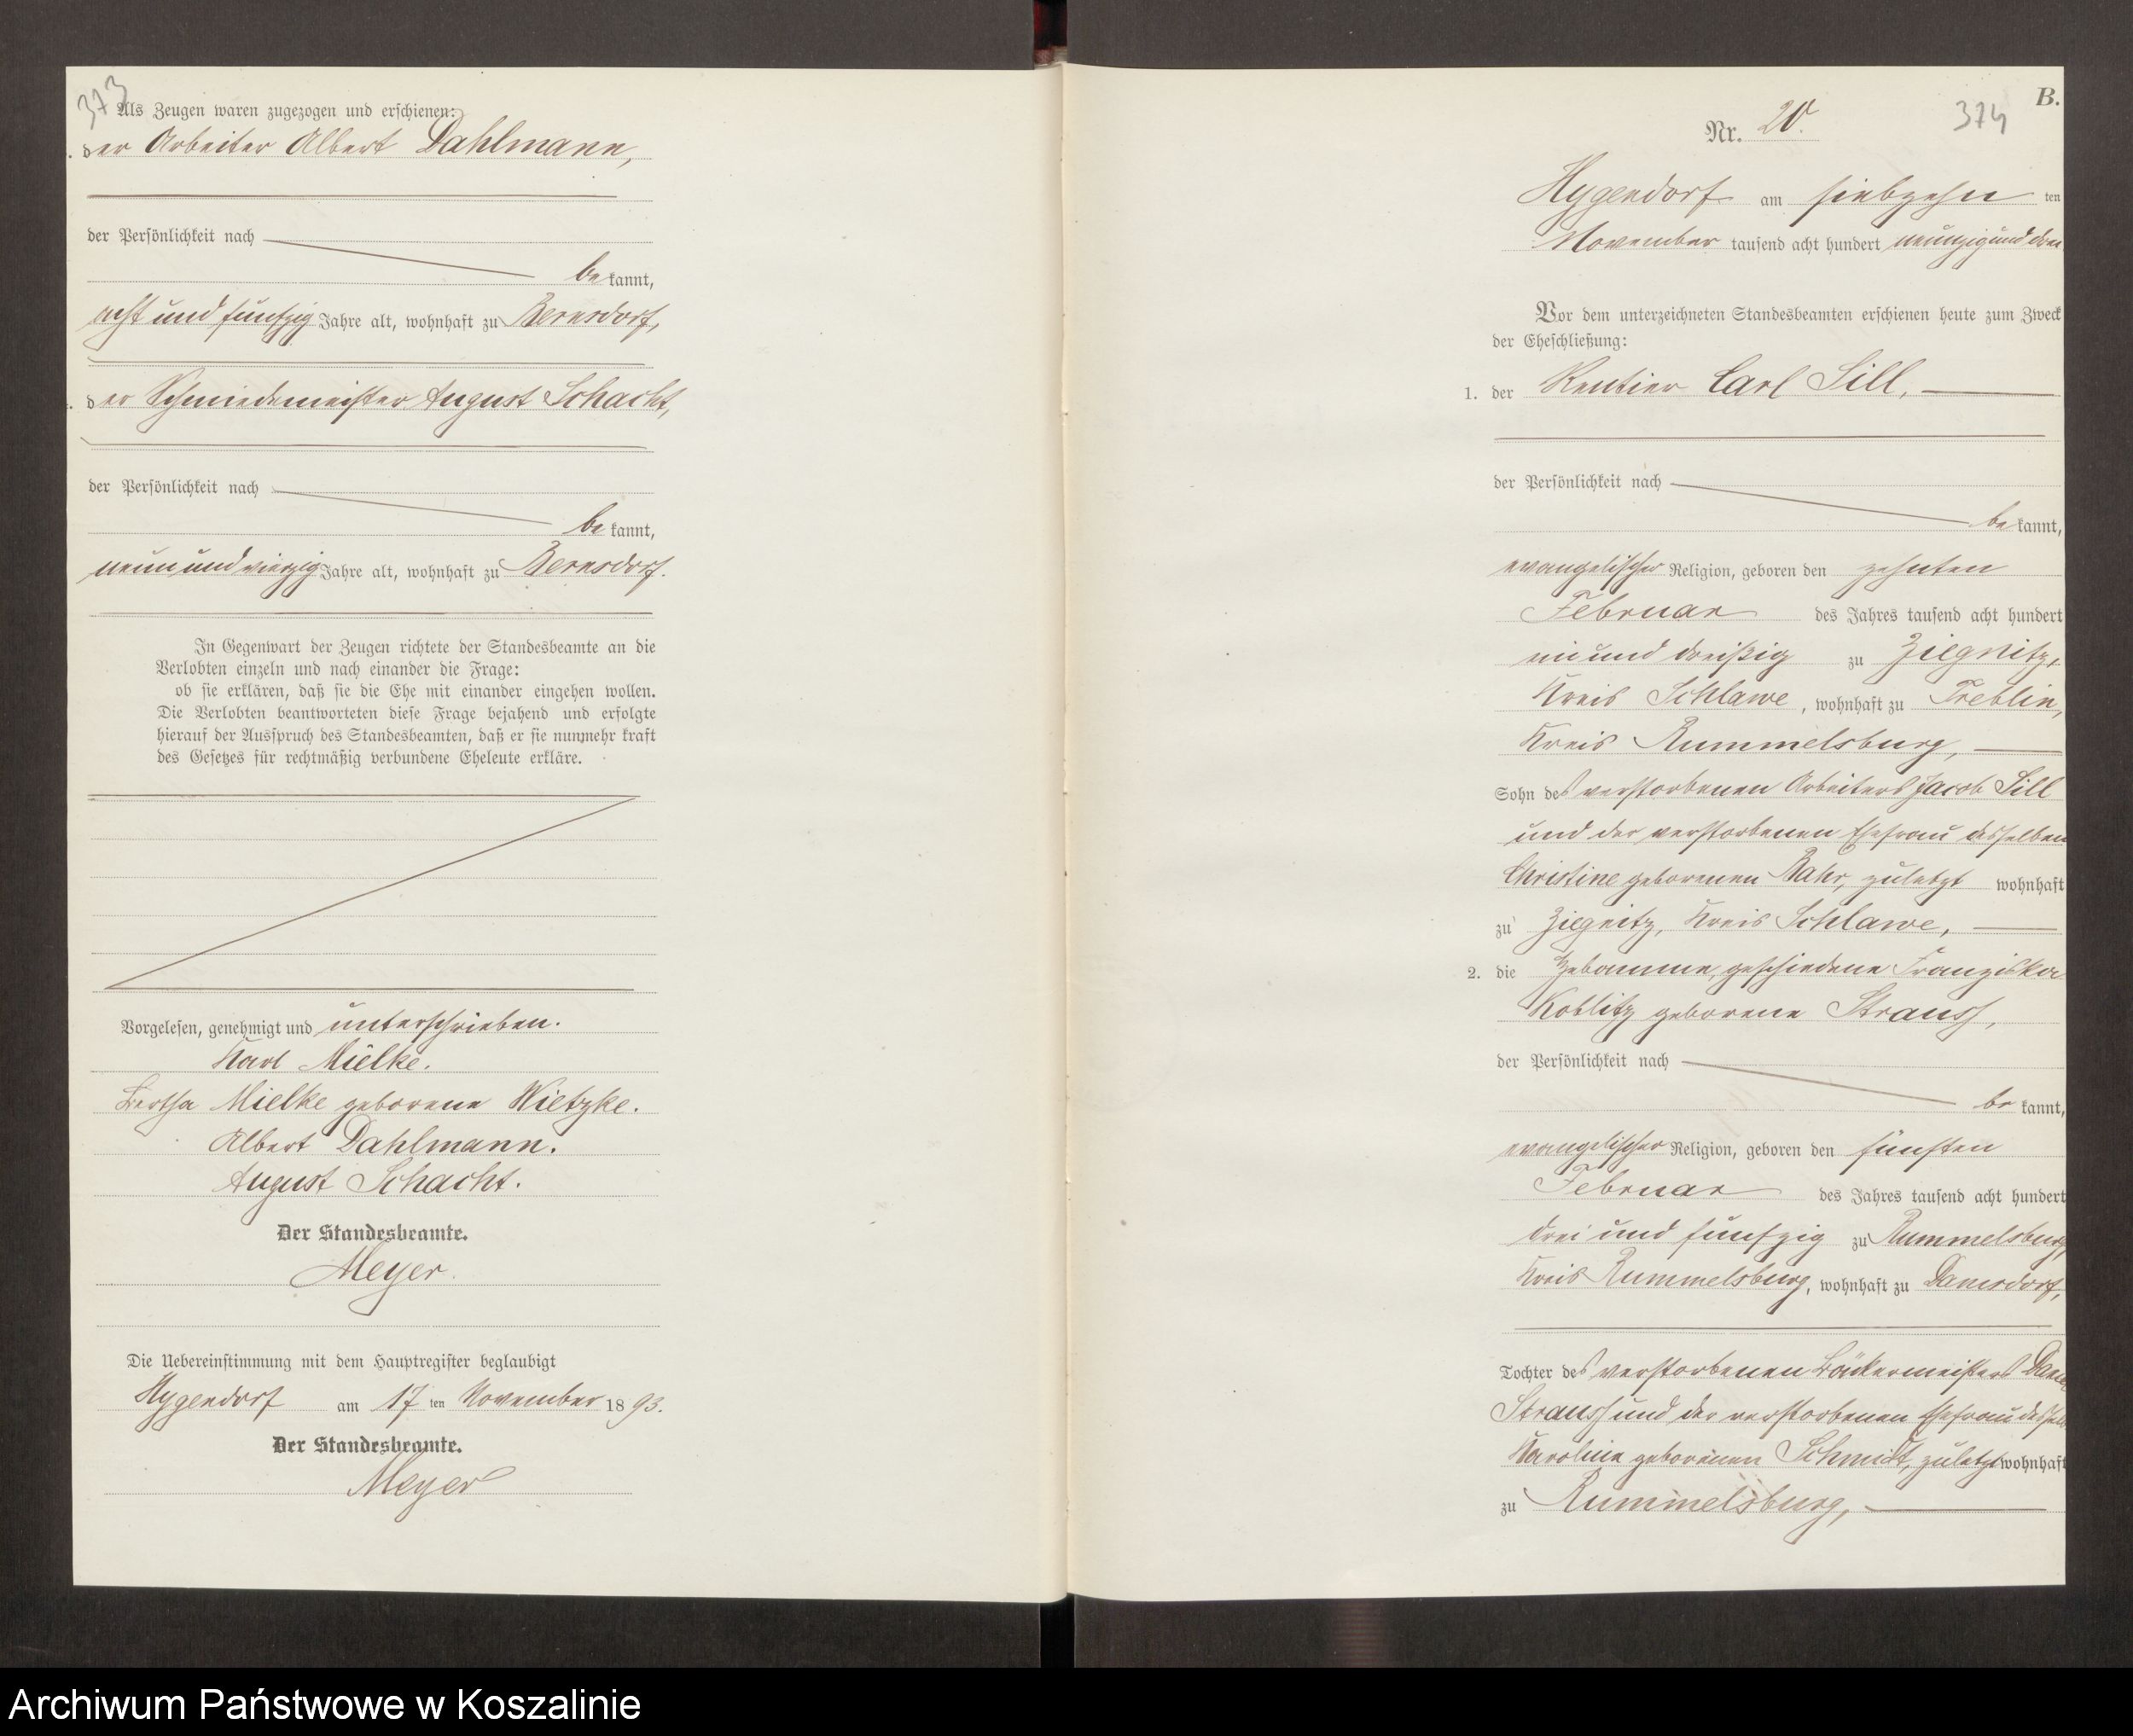 373
Als Zeugen waren zugezogen und erschienen:
der Arbeiter Albert Dahlmann,
der Persönlichkeit nach
be kannt,
acht und fünfzig Jahre alt, wohnhaft zu Bernsdorf,
der Schmiedemeister August Schacht,
der Persönlichkeit nach
be kannt,
neun und vierzig Jahre alt, wohnhaft zu Bernsdorf.
In Gegenwart der Zeugen richtete der Standesbeamte an die
Verlobten einzeln und nach einander die Frage:
ob sie erklären, daß sie die Ehe mit einander eingehen wollen.
Die Verlobten beantworteten diese Frage bejahend und erfolgte
hierauf der Ausspruch des Standesbeamten, daß er sie nunmehr kraft
des Gesetzes für rechtmäßig verbundene Eheleute erkläre.
Vorgelesen, genehmigt und unterschrieben.
Karl Mielke.
Bertha Mielke geborene Wietzke.
Albert Dahlmann.
August Schacht.
Der Standesbeamte.
Meyer.
Die Uebereinstimmung mit dem Hauptregister beglaubigt
Hygendorf am 17 ten November 18 93.
Der Standesbeamte.
Meyer
B.
374
Nr. 20.
Hygendorf am siebzehn ten
November tausend acht hundert neunzig und drei
Vor dem unterzeichneten Standesbeamten erschienen heute zum Zweck
der Eheschließung:
1. der Rentier Carl Sill,
der Persönlichkeit nach
be kannt,
evangelischer Religion, geboren den zehnten
Februar des Jahres tausend acht hundert
ein und dreißig zu Ziegnitz,
Kreis Schlawe, wohnhaft zu Treblin,
Kreis Rummelsburg,
Sohn des verstorbenen Arbeiters Jacob Sill
und der verstorbenen Ehefrau desselben
Christine geborenen Bahr, zuletzt wohnhaft
zu Ziegnitz, Kreis Schlawe,
2. die Hebamme, geschiedene Franziska
Koblitz geborene Strauss,
der Persönlichkeit nach
be kannt,
evangelischer Religion, geboren den fünften
Februar des Jahres tausend acht hundert
drei und fünfzig zu Rummelsburg,
Kreis Rummelsburg, wohnhaft zu Damsdorf,
Tochter des verstorbenen Bäckermeisters
Strauss und der verstorbenen Ehefrau
Karoline geborenen Schmidt, zuletzt wohnhaft
zu Rummelsburg,
Archiwum Państwowe w Koszalinie